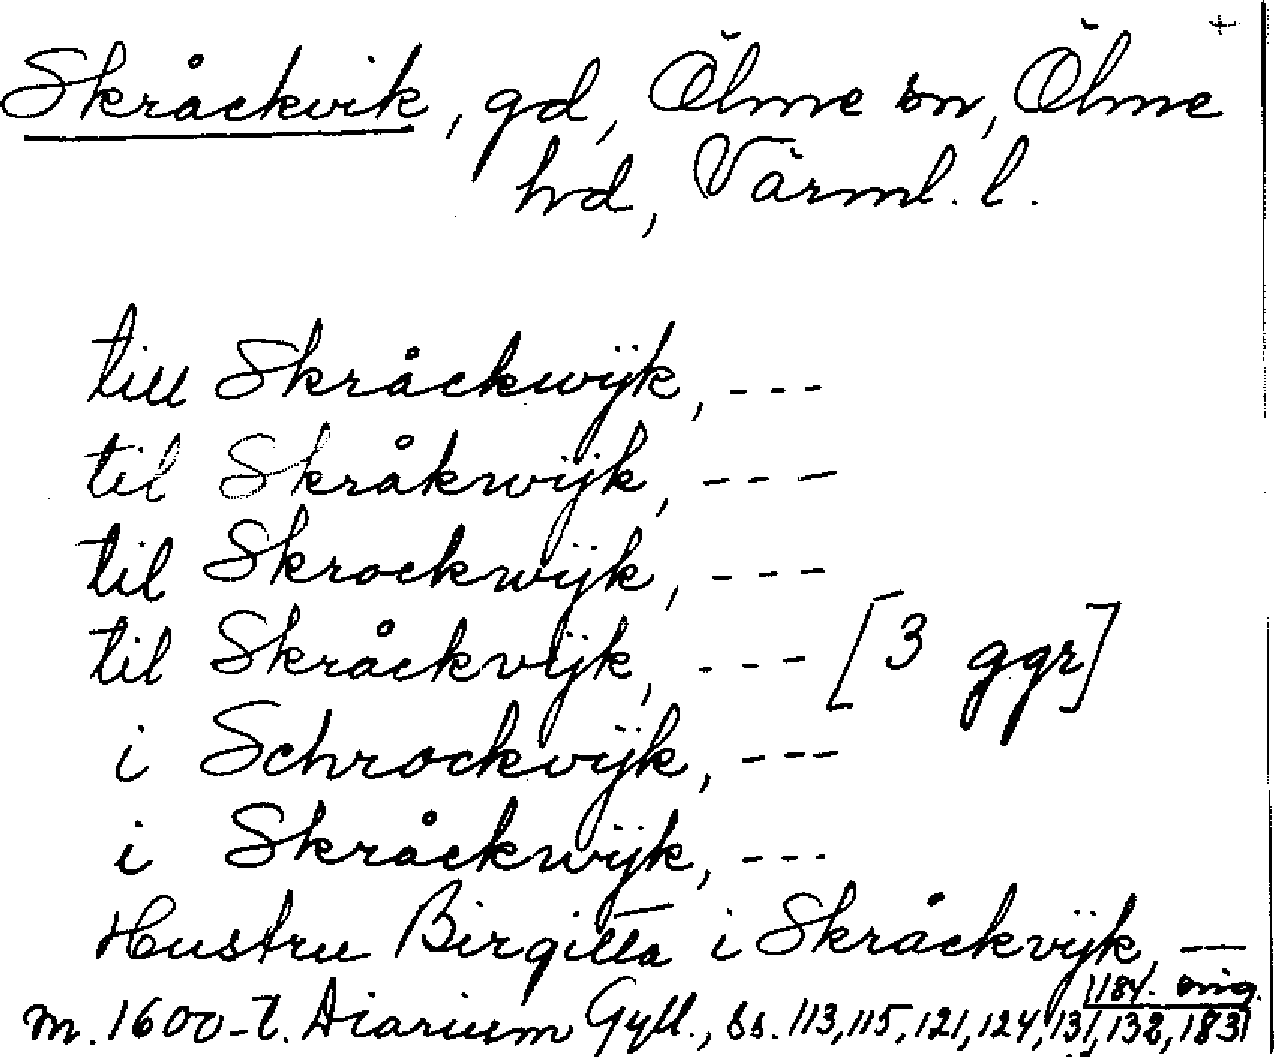 +
Skråckvik, gd, Ölme sn, Ölme
hd, Värml. l.
till Skråckwijk, ---
til Skråkwijk, ---
til Skrockwijk, ---
til Skråckvijk, --- [3 ggr]
i Schrockvijk, ---
i Skråckwijk, ---
Hustru Birgitta i Skråckvijk, —
184. orig.
m. 1600-t. Diarium Gyll., ss. 113, 115, 121, 124, 131, 138, 183